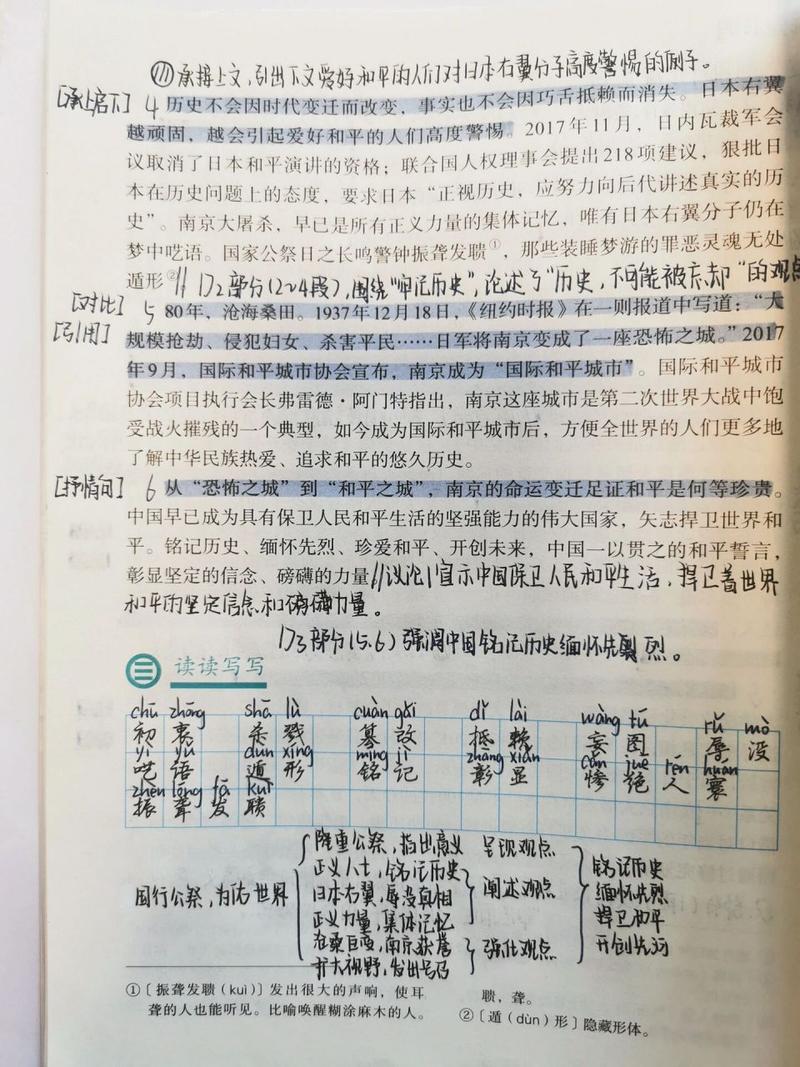 ⑪承接上文,引出下文爱好和平的人们对日本右翼分子高度警惕的例子。
[承上启下] 4 历史不会因时代变迁而改变,事实也不会因巧舌抵赖而消失。日本右翼
越顽固,越会引起爱好和平的人们高度警惕。2017年11月,日内瓦裁军会
议取消了日本和平演讲的资格;联合国人权理事会提出218项建议,狠批日
本在历史问题上的态度,要求日本“正视历史,应努力向后代讲述真实的历
史”。南京大屠杀,早已是所有正义力量的集体记忆,唯有日本右翼分子仍在
梦中呓语。国家公祭日之长鸣警钟振聋发聩①,那些装睡梦游的罪恶灵魂无处
遁形②。// P2部分(2~4段),围绕“牢记历史”,论述了“历史,不可能被忘却”的观点
[对比] 5 80年,沧海桑田。1937年12月18日,《纽约时报》在一则报道中写道:“大
[引用] 规模抢劫、侵犯妇女、杀害平民……日军将南京变成了一座恐怖之城。”2017
年9月,国际和平城市协会宣布,南京成为“国际和平城市”。国际和平城市
协会项目执行会长弗雷德·阿门特指出,南京这座城市是第二次世界大战中饱
受战火摧残的一个典型,如今成为国际和平城市后,方便全世界的人们更多地
了解中华民族热爱、追求和平的悠久历史。
[抒情句] 6 从“恐怖之城”到“和平之城”,南京的命运变迁足证和平是何等珍贵。
中国早已成为具有保卫人民和平生活的坚强能力的伟大国家,矢志捍卫世界和
平。铭记历史、缅怀先烈、珍爱和平、开创未来,中国一以贯之的和平誓言,
彰显坚定的信念、磅礴的力量。//议论 宣示中国保卫人民和平生活,捍卫着世界
和平的坚定信念和磅礴力量。
P3部分(5.6)强调中国铭记历史缅怀先烈。
三 读读写写
chū zhōng shā lù cuàn gǎi dǐ lài wàng tú rǔ mò
初衷 杀戮 篡改 抵赖 妄图 辱没
yì yǔ dùn xíng míng jì zhāng xiǎn cǎn jué rén huán
呓语 遁形 铭记 彰显 惨绝人寰
zhèn lóng fā kuì
振聋发聩
国行公祭,为佑世界
隆重公祭,指出意义 呈现观点
正义人士,铭记历史
日本右翼,辱没真相 阐述观点
正义力量,集体记忆
沧桑巨变,南京获誉 强化观点
扩大视野,发出号召
铭记历史
缅怀先烈
捍卫和平
开创先河
①〔振聋发聩(kuì)〕发出很大的声响,使耳
聋的人也能听见。比喻唤醒糊涂麻木的人。
聩,聋。
②〔遁(dùn)形〕隐藏形体。